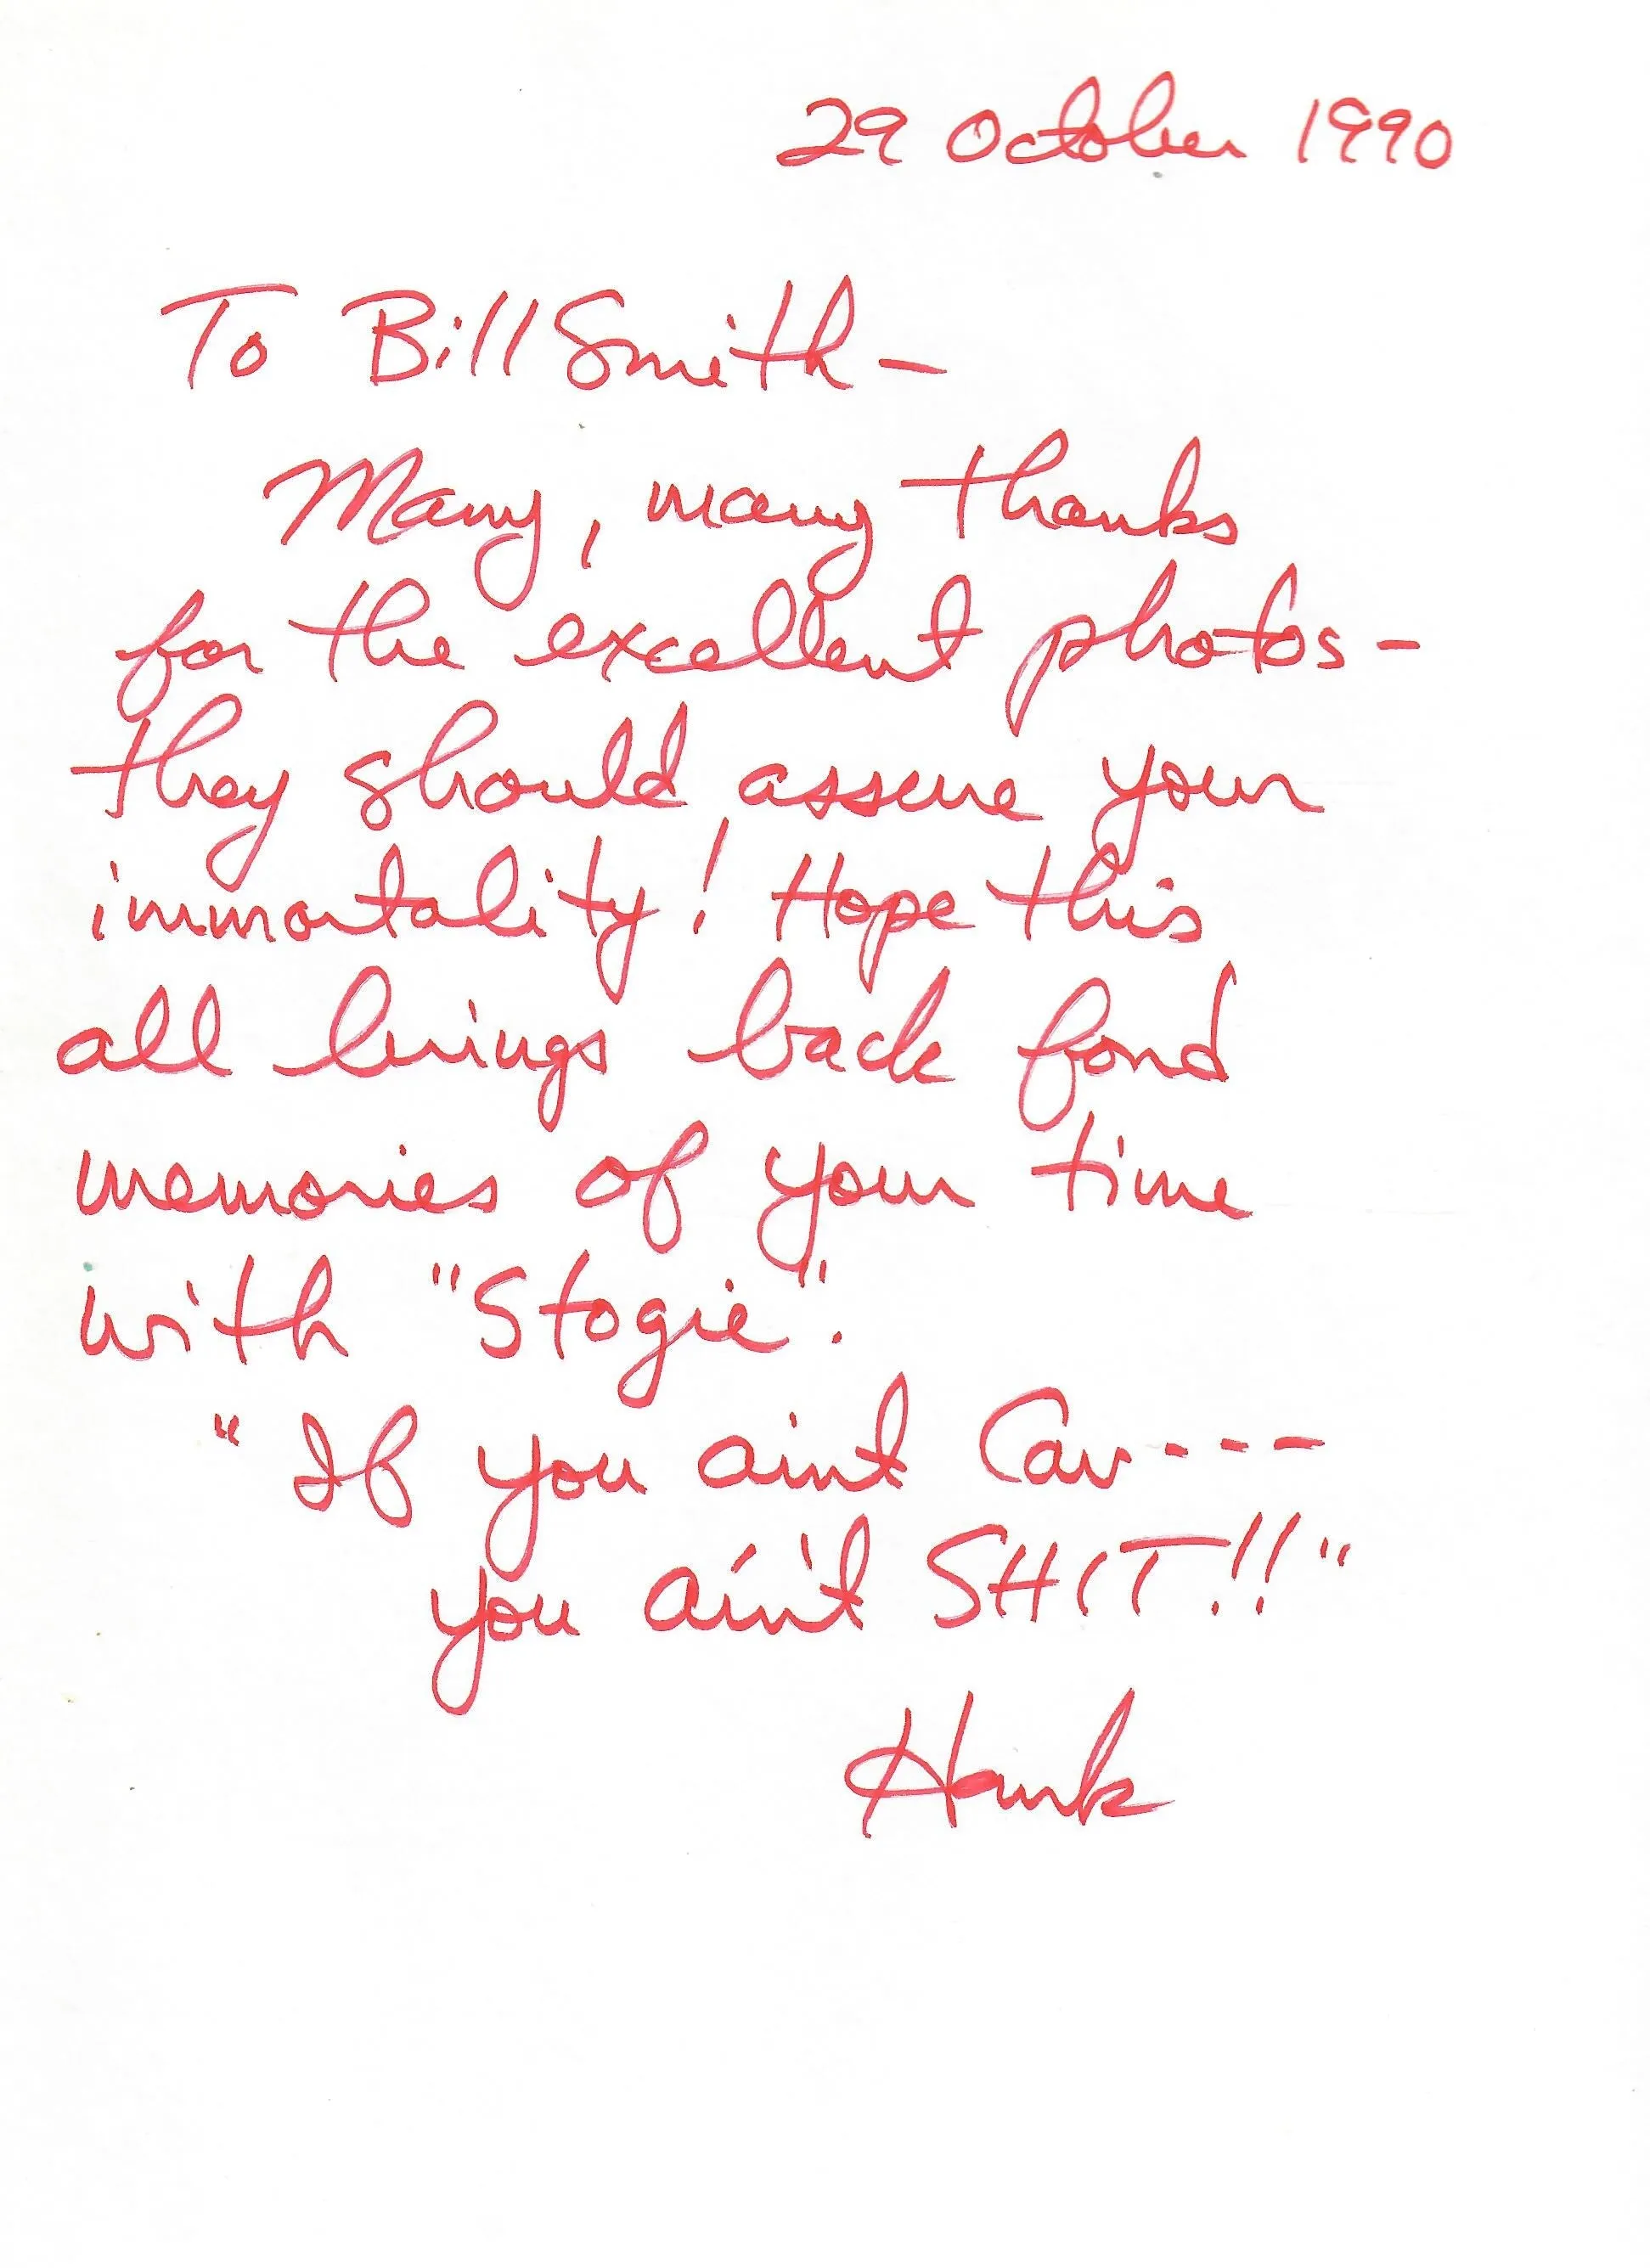 29 October 1990
To Bill Smith -
Many, many thanks
for the excellent photos -
they should assure your
immortality! Hope this
all brings back fond
memories of your time
with "Stogie".
"If you aint Cav----
you ain't SHIT!!"
Hank